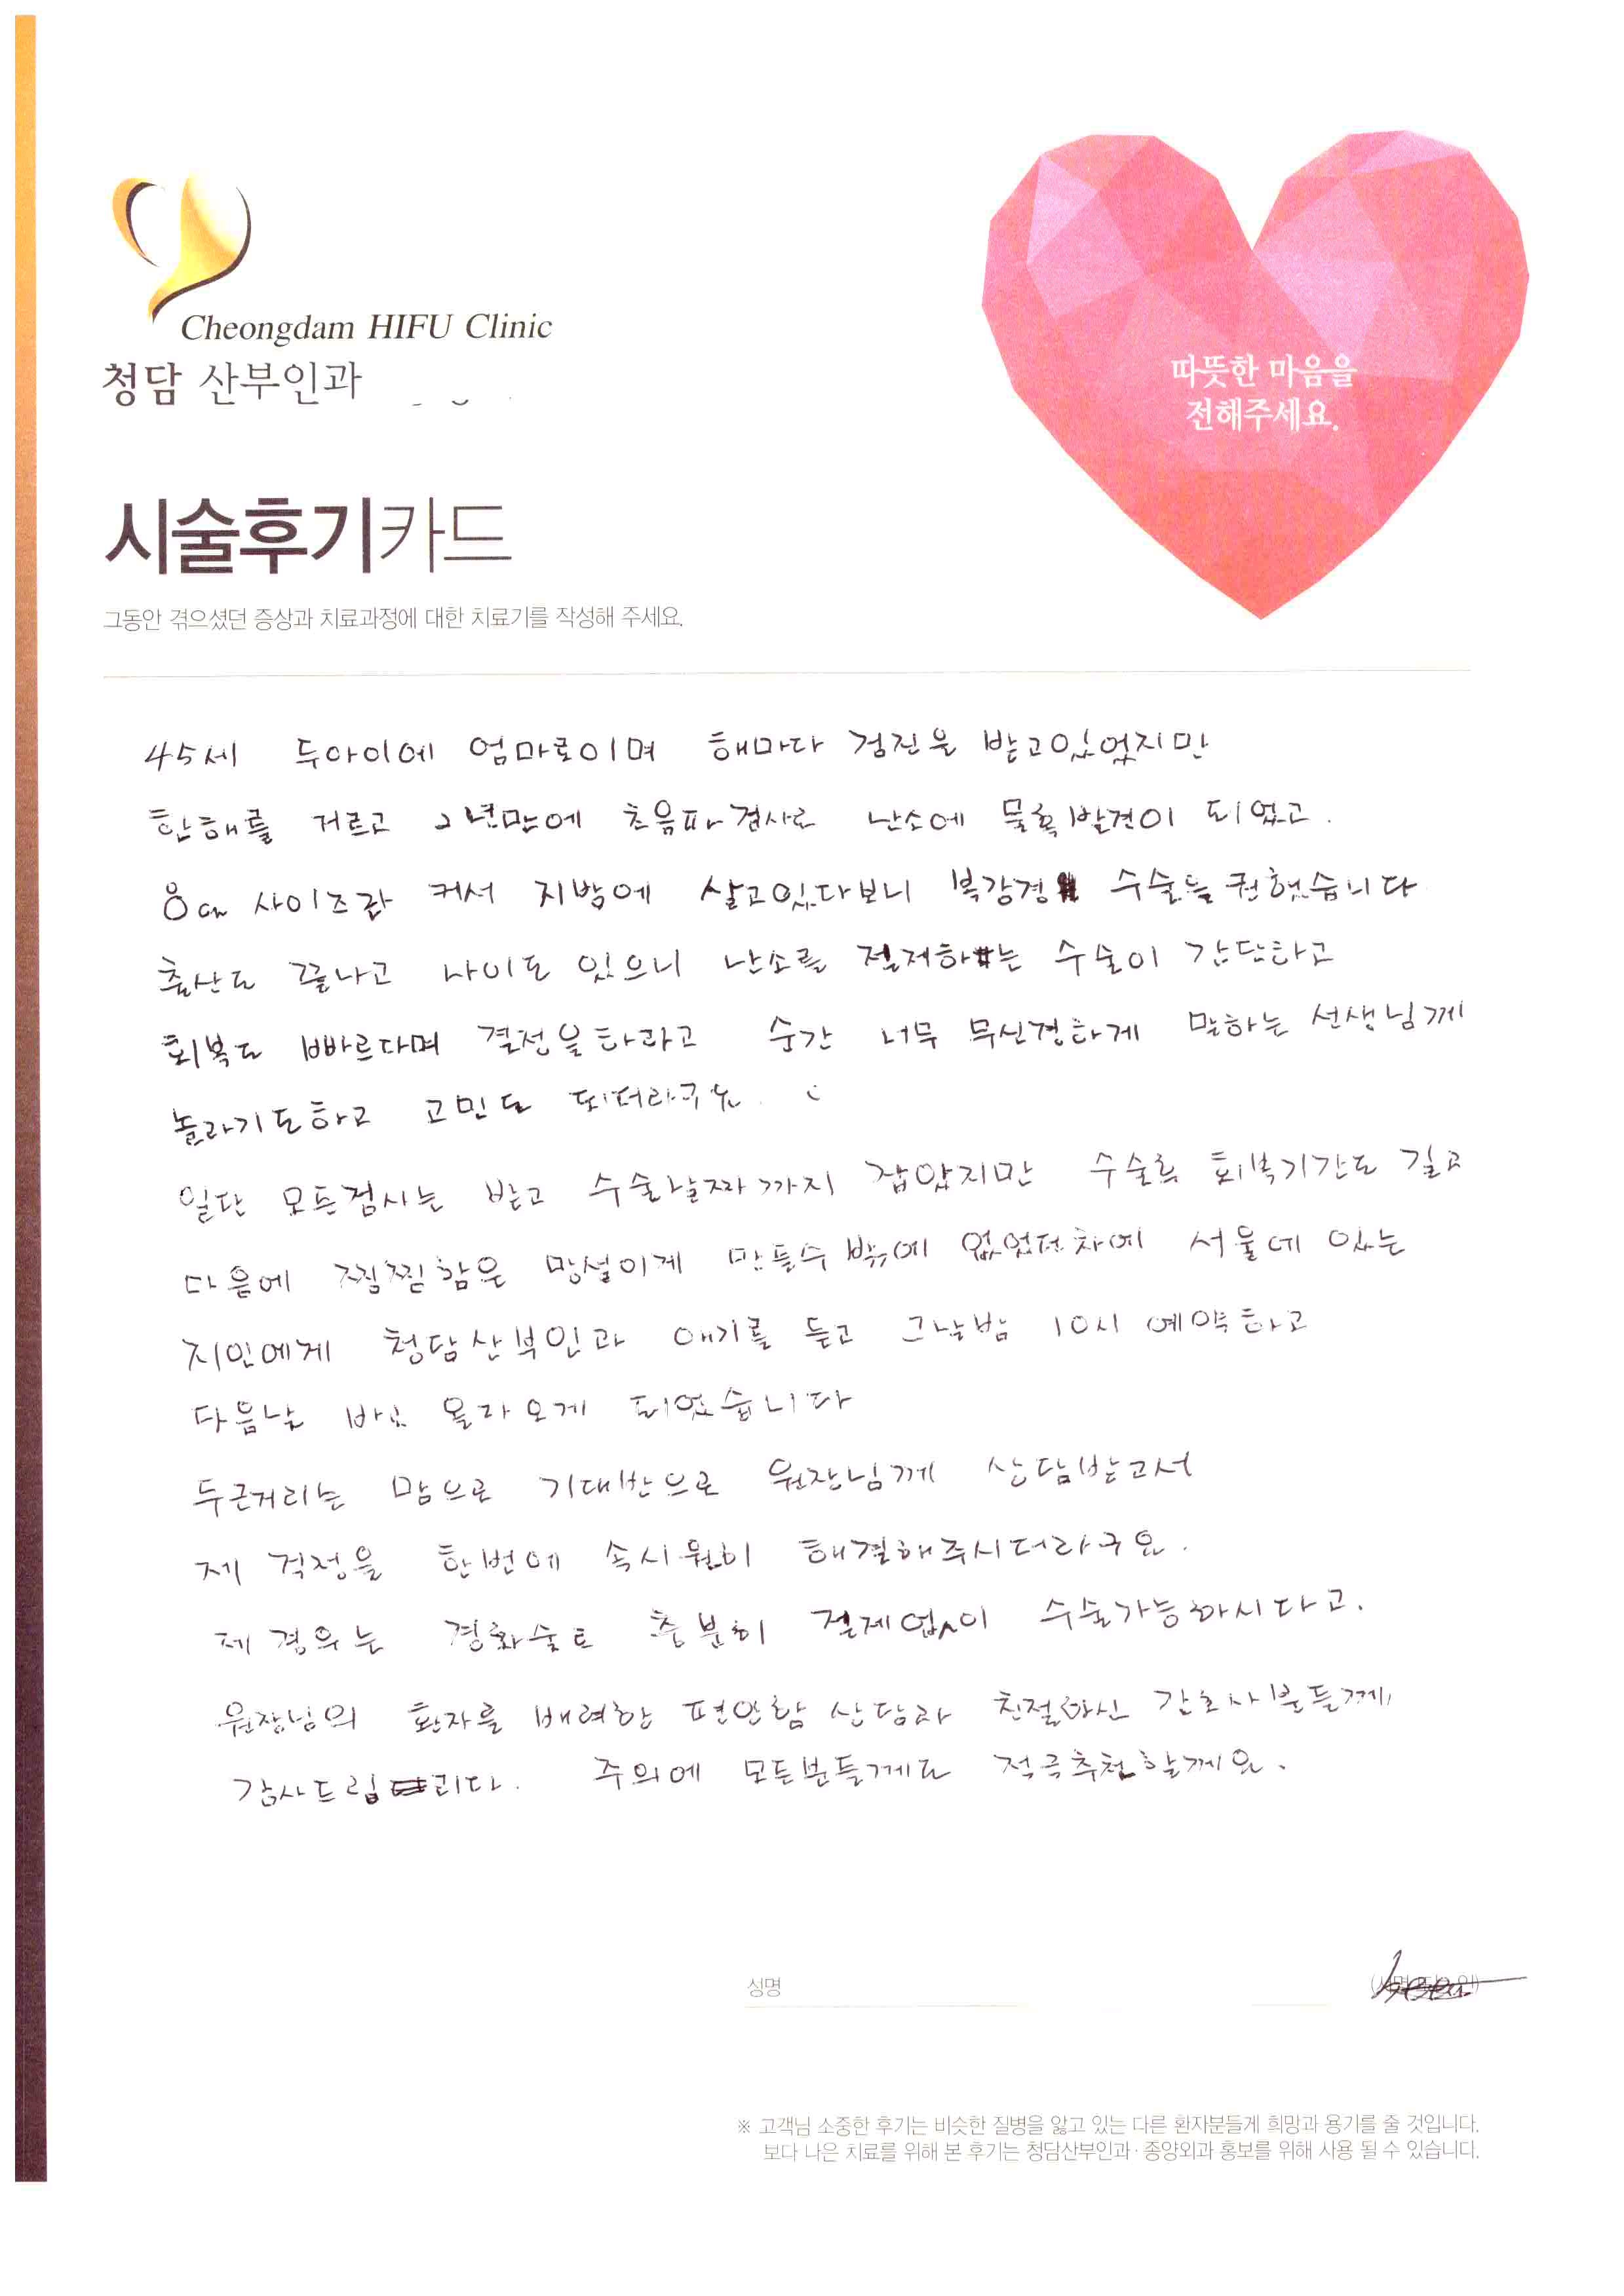 Cheongdam HIFU Clinic
청담 산부인과
따뜻한 마음을
전해주세요.
시술후기카드
그동안 겪으셨던 증상과 치료과정에 대한 치료기를 작성해 주세요.
45세 두아이에 엄마로이며 해마다 검진을 받고있었지만
한해를 거르고 2년만에 초음파검사로 난소에 물혹발견이 되었고.
8cm 사이즈라 커서 지방에 살고있다보니 복강경 수술을 권했습니다
출산도 끝나고 나이도 있으니 난소를 절제하는 수술이 간단하고
회복도 빠르다며 결정을하라고 순간 너무 무신경하게 말하는 선생님께
놀라기도하고 고민도 되더라구요.
일단 모든검사는 받고 수술날짜까지 잡았지만 수술후 회복기간도 길고
마음에 찜찜함은 망설이게 만들수 밖에 없었던차에 서울에 있는
지인에게 청담산부인과 얘기를 듣고 그날밤 10시 예약하고
다음날 바로 올라오게 되었습니다
두근거리는 맘으로 기대반으로 원장님께 상담받고서
제 걱정을 한번에 속시원히 해결해주시더라구요.
제 경우는 경화술로 충분히 절제없이 수술가능하시다고.
원장님의 환자를 배려한 편안함 상담과 친절하신 간호사분들께,
감사드립니다. 주의에 모든분들께도 적극추천할께요.
성명
※ 고객님 소중한 후기는 비슷한 질병을 앓고 있는 다른 환자분들게 희망과 용기를 줄 것입니다.
보다 나은 치료를 위해 본 후기는 청담산부인과·종양외과 홍보를 위해 사용 될 수 있습니다.